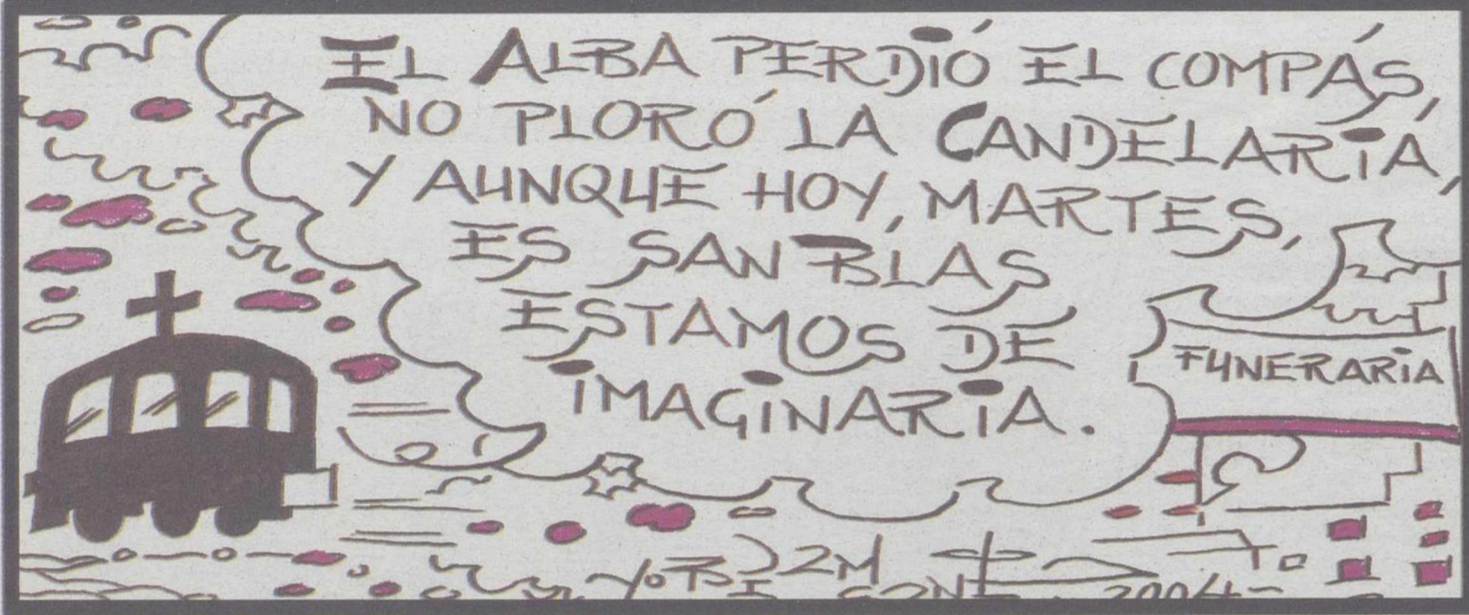 EL ALBA PERDIÓ EL COMPÁS,
NO PLORÓ LA CANDELARIA,
Y AUNQUE HOY, MARTES,
ES SAN BLAS
ESTAMOS DE
IMAGINARIA.
FUNERARIA
2004